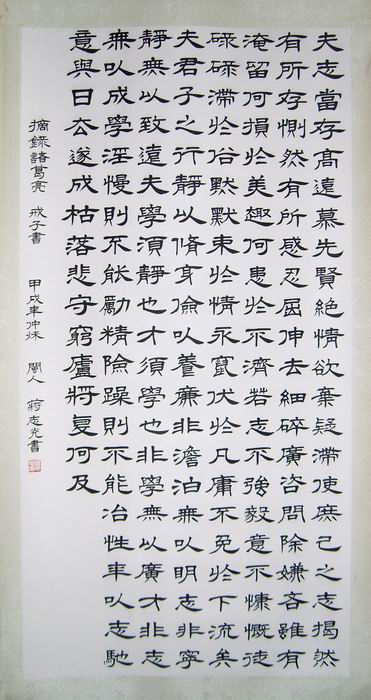 夫志當存高遠慕先賢絕情欲棄疑滯使庶己之志揭然
有所存惻然有所感忍屈伸去細碎廣咨問除嫌吝雖有
淹留何損於美趣何患於不濟若志不強毅意不慷慨徒
碌碌滯於俗默默束於情永竄伏於凡庸不免於下流矣
夫君子之行靜以脩身儉以養廉非澹泊無以明志非寧
靜無以致遠夫學須靜也才須學也非學無以廣才非志
無以成學淫慢則不能勵精險躁則不能冶性年以志馳
意與日去遂成枯落悲守窮廬將复何及
摘錄諸葛亮 戒子書 甲戌年仲秋 閩人 蔣志光書